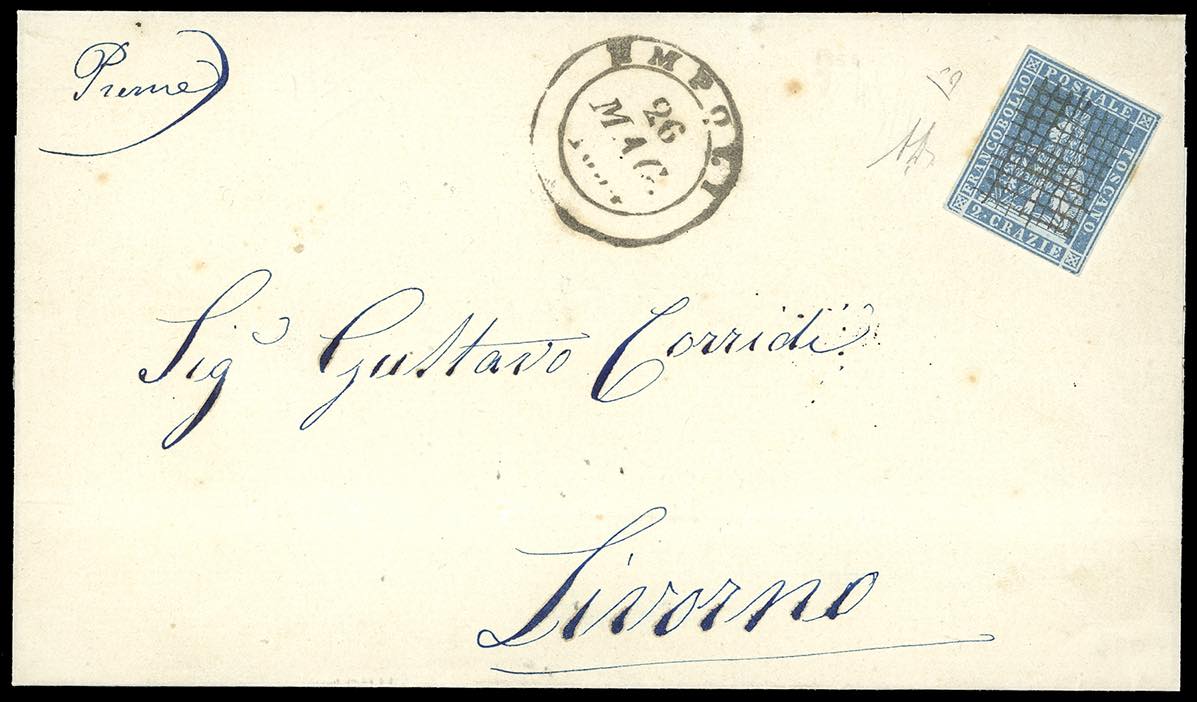 Preme
EMPOLI
26
MAG.
FRANCOBOLLO POSTALE TOSCANO
2 · CRAZIE
Sigr Gustavo Corridi
Livorno